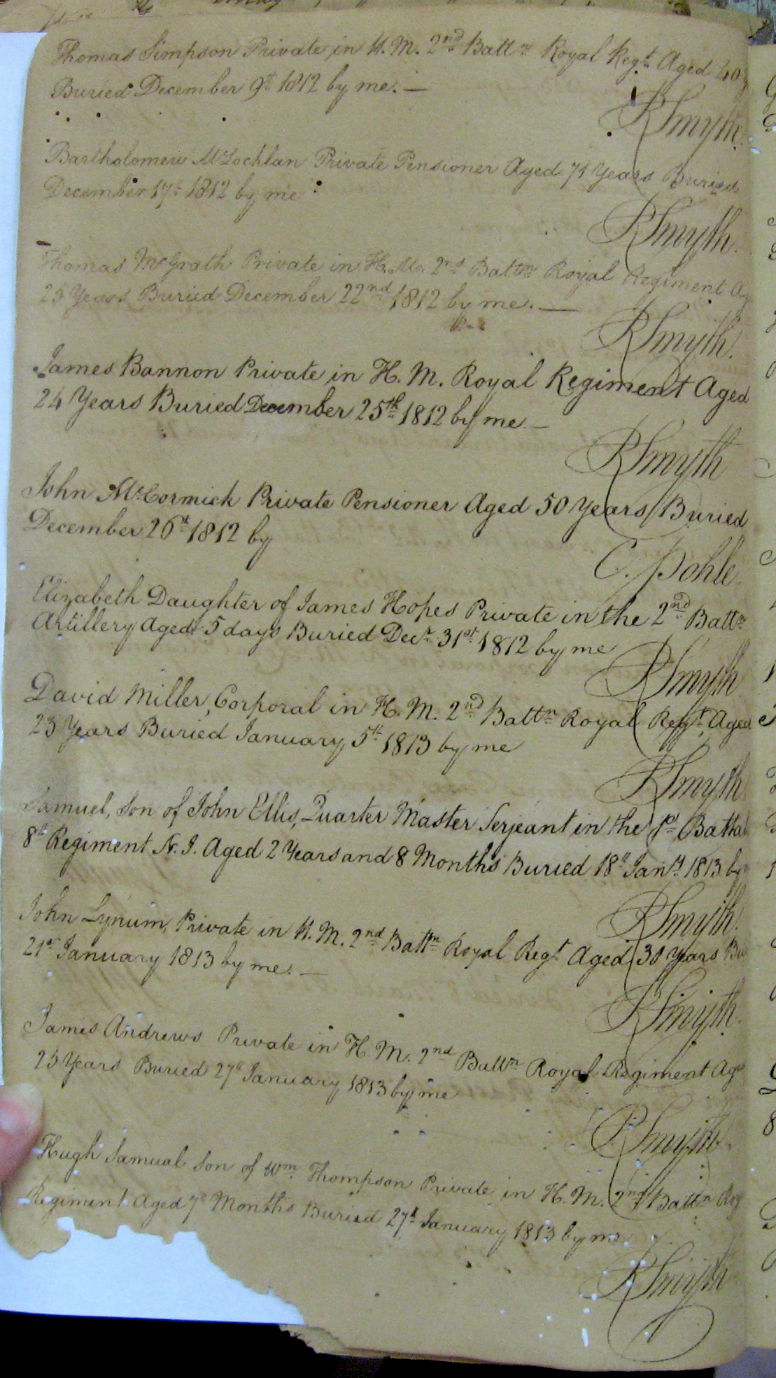 Thomas Simpson Private in H.M. 2nd Battn Royal Regt Aged 40
Buried December 9th 1812 by me. —
R Smyth
Bartholomew McLochlan Private Pensioner Aged 71 Years Buried
December 17th 1812 by me
R Smyth
Thomas McGrath Private in H.Ms. 2nd Battn Royal Regiment Ag
25 Years Buried December 22nd 1812 by me. —
R Smyth
James Bannon Private in H. M. Royal Regiment Aged
24 Years Buried December 25th 1812 by me —
R Smyth
John McCormick Private Pensioner Aged 50 Years Buried
December 26th 1812 by
C. Pohle
Elizabeth Daughter of James Hopes Private in the 2nd Battn
Artillery Aged 5 days Buried Decr 31st 1812 by me
R Smyth
David Miller, Corporal in H. M. 2nd Battn Royal Regt Aged
23 Years Buried January 5th 1813 by me
R Smyth
Samuel, Son of John Ellis, Quarter Master Serjeant in the 1st Batta
8th Regiment N.I. Aged 2 Years and 8 Months Buried 18th Jany 1813 by
R Smyth
John Lynum, Private in H.M. 2nd Battn Royal Regt Aged 30 Years Bu
21st January 1813 by me. —
R Smyth
James Andrews Private in H. M. 2nd Battn Royal Regiment Age
25 Years Buried 27th January 1813 by me
R Smyth
Hugh Samual Son of Wm Thompson Private in H. M. 2nd Battn Roy
Regiment Aged 7 Months Buried 27th January 1813 by me
R Smyth